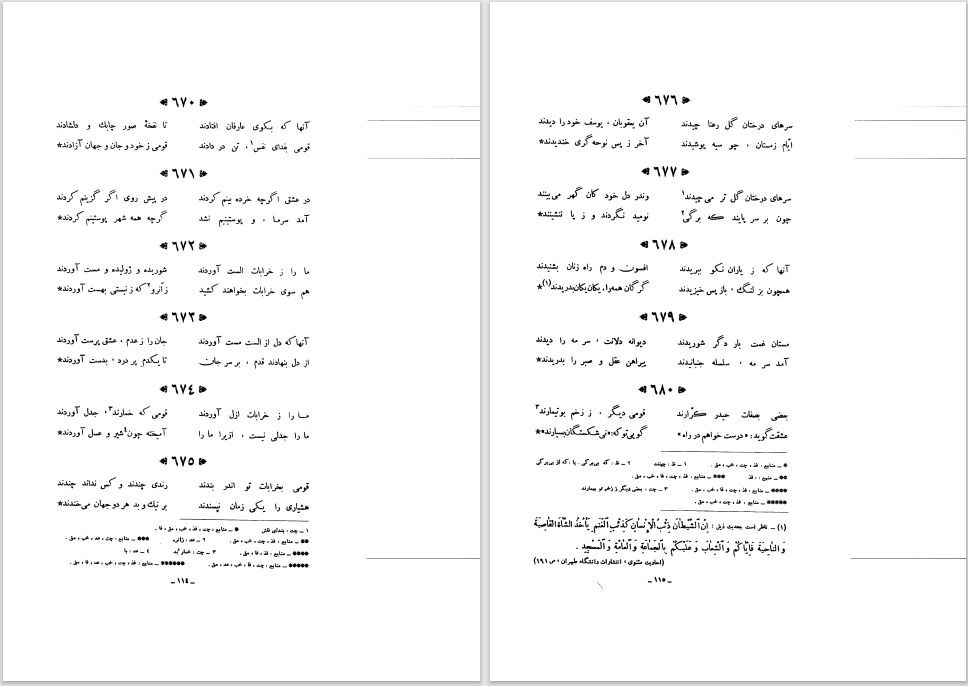 ۶۷۰
آنها که بکوی عارفان افتادند تا نفخهٔ صور چابك و دلشادند
قومی بفدای نفس۱، تن در دادند قومی ز خود و جان و جهان آزادند*
۶۷۱
در عشق اگرچه خرده بینم کردند در پیش روی اگر گزینم کردند
آمد سرما ، و پوستینیم نشد گرچه همه شهر پوستینم کردند*
۶۷۲
ما را ز خرابات الست آوردند شوریده و ژولیده و مست آوردند
هم سوی خرابات بخواهند کشید زآنرو۲ که ز نیستی بهست آوردند*
۶۷۳
آنها که دل از الست مست آوردند جان را ز عدم ، عشق پرست آوردند
از دل بنهادند قدم ، بر سر جان تا یکدم پر درد ، بدست آوردند*
۶۷۴
ما را ز خرابات ازل آوردند قومی که خمارند۳، جدل آوردند
ما را جدلی نیست ، ازیرا ما را آمیخته چون۴ شیر و عسل آوردند*
۶۷۵
قومی بخرابات تو اندر بندند رندی چندند و کس نداند چندند
هشیاری را یکی زمان نپسندند بر نیك و بد هر دو جهان می‌خندند*
۱ ــ چت : بفدای نفس * ــ منابع : چت ، فذ ، خب ، مق ، فا .
** ــ منابع : چت ، فا ، خب ، مق . ۲ ــ عد : زانره *** ــ منابع : چت ، عد ، خب ، مق .
**** ــ منابع : فذ ، فا ، مق . ۳ ــ چت :
***** ــ منابع : چت ، فا ، خب ، عد ، مق . ****** ــ منابع : فذ ، چت ، خب ، عد ، فا ، مق .
ــ ۱۱۴ ــ
۶۷۶
سرهای درختان گل رعنا چیدند آن یعقوبان ، یوسف خود را دیدند
ایّام زمستان ، چو سیه پوشیدند آخر ز پس نوحه گری خندیدند*
۶۷۷
سرهای درختان گل تر می‌چیدند۱ وندر دل خود کان گهر می‌بینند
چون بر سر پایند که بر‌گی۲ نومید نگردند و ز پا ننشینند*
۶۷۸
آنها که ز یاران نکو ببریدند افسون و دم راه زنان بشنیدند
همچون بز لنگ ، باز پس خیزیدند گرگان همه را، یکان یکان بدریدند(۱)*
۶۷۹
مستان غمت بار دگر شوریدند دیوانه دلانت ، سر مه را دیدند
آمد سر مه ، سلسله جنبانیدند پیراهن عقل و صبر را بدریدند*
۶۸۰
بعضی بصفات حیدر کرّارند قومی دیگر ، ز زخم بوتیمارند۳
عشقت گوید: «درست خواهم در راه» گویی تو که: «نی شکستگان بسیارند»*
* ــ منابع : فذ ، چت ، خب ، مق . ۱ ــ فذ : چینند ۲ ــ فذ : که بی‌برگی .
** ــ منبع : فذ *** ــ منابع : فذ ، چت ، فا ، خب ، مق .
**** ــ منابع : فذ ، چت ، فا ، خب ، مق . ۳ ــ چت : بعضی دیگر ز زخم تو بیمارند
***** ــ منابع : فذ ، چت ، خب ، مق .
(۱) ــ ناظر است بحدیث ذیل : اِنَّ الشَّیْطانَ ذِئْبُ الْاِنْسانِ کَذِئْبِ الْغَنَمِ یَأْخُذُ الشّاةَ الْقاصِیَةَ
وَ النّاحِیَةَ فَاِیّاکُمْ وَ الشِّعابَ وَ عَلَیْکُمْ بِالْجَماعَةِ وَ الْعامَّةِ وَ الْمَسْجِدِ .
(احادیث مثنوی ، انتشارات دانشگاه طهران ، ص ۱۹۱)
ــ ۱۱۵ ــ